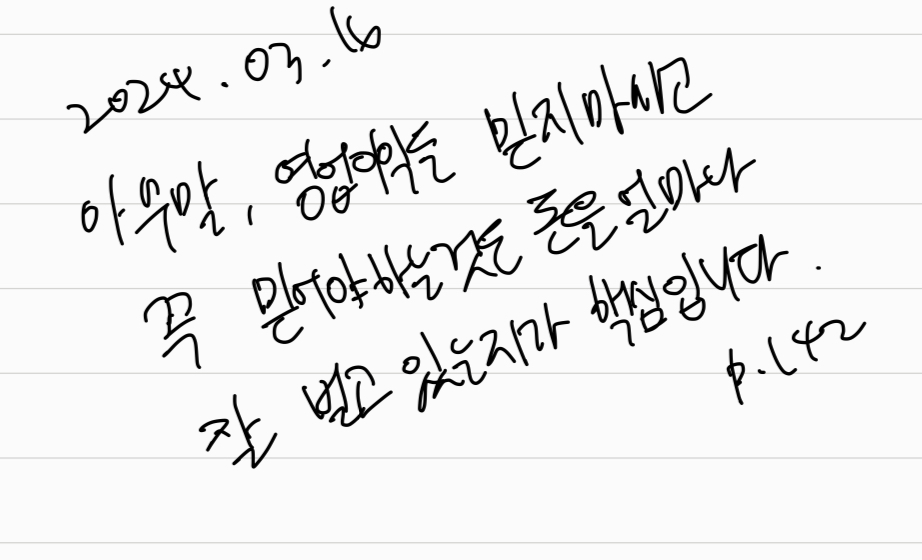 2024.03.16
아무말, 영업이익을 믿지마시고
꼭 믿어야하는것은 돈을 얼마나
잘 벌고 있는지가 핵심입니다.
p.142